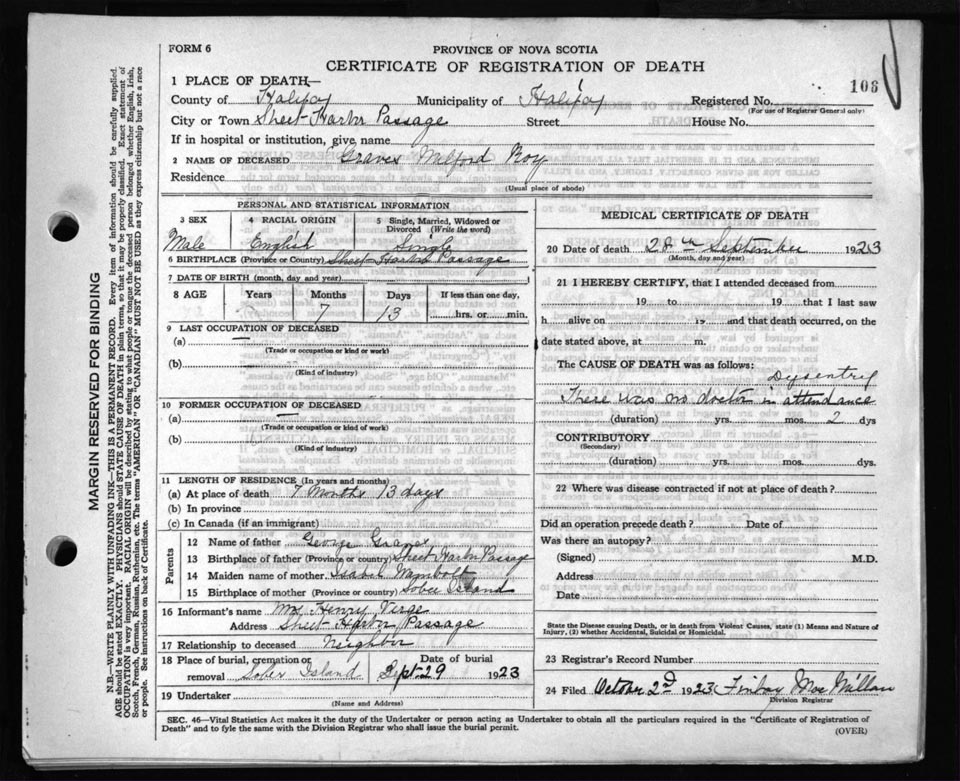 FORM 6
PROVINCE OF NOVA SCOTIA
CERTIFICATE OF REGISTRATION OF DEATH
106
1 PLACE OF DEATH—
County of Halifax Municipality of Halifax Registered No.
(For use of Registrar General only)
City or Town Sheet Harbor Passage Street House No.
If in hospital or institution, give name
2 NAME OF DECEASED Graves Milford Roy
Residence
(Usual place of abode)
PERSONAL AND STATISTICAL INFORMATION
3 SEX 4 RACIAL ORIGIN 5 Single, Married, Widowed or Divorced (Write the word)
Male English Single
6 BIRTHPLACE (Province or Country) Sheet Harbor Passage
7 DATE OF BIRTH (month, day and year)
8 AGE Years Months Days If less than one day,
7 13 hrs. or min.
9 LAST OCCUPATION OF DECEASED
(a) —
(Trade or occupation or kind or work)
(b)
(Kind of industry)
10 FORMER OCCUPATION OF DECEASED
(a) —
(Trade or occupation or kind or work)
(b)
(Kind of industry)
11 LENGTH OF RESIDENCE (In years and months)
(a) At place of death 7 Months 13 days
(b) In province
(c) In Canada (if an immigrant)
Parents
12 Name of father George Graves
13 Birthplace of father (Province or country) Sheet Harbor Passage
14 Maiden name of mother Isabel
15 Birthplace of mother (Province or country) Sober Island
16 Informant's name Mrs Henry Verge
Address Sheet Harbor Passage
17 Relationship to deceased Neighbor
18 Place of burial, cremation or removal Sober Island Date of burial Sept 29 1923
19 Undertaker
(Name and Address)
MEDICAL CERTIFICATE OF DEATH
20 Date of death 28th September 1923
(Month, day and year)
21 I HEREBY CERTIFY, that I attended deceased from
19 to 19 that I last saw
h alive on 19 and that death occurred, on the
date stated above, at m.
The CAUSE OF DEATH was as follows:
Dysentry
There was no doctor in attendance
(duration) yrs. mos. 2 dys
CONTRIBUTORY
(Secondary)
(duration) yrs. mos. dys.
22 Where was disease contracted if not at place of death?
Did an operation precede death? Date of
Was there an autopsy?
(Signed) M.D.
Address
Date
State the Disease causing Death, or in death from Violent Causes, state (1) Means and Nature of
Injury, (2) whether Accidental, Suicidal or Homicidal.
23 Registrar's Record Number
24 Filed October 2d 1923 Finlay MacMillan
Division Registrar
SEC. 46—Vital Statistics Act makes it the duty of the Undertaker or person acting as Undertaker to obtain all the particulars required in the "Certificate of Registration of
Death" and to fyle the same with the Division Registrar who shall issue the burial permit.
(OVER)
MARGIN RESERVED FOR BINDING
N.B—WRITE PLAINLY WITH UNFADING INK—THIS IS A PERMANENT RECORD. Every item of information should be carefully supplied.
AGE should be stated EXACTLY. PHYSICIANS should STATE CAUSE OF DEATH in plain terms, so that it may be properly classified. Exact statement of
OCCUPATION is very important. RACIAL ORIGIN will be described by stating to what people or tongue the deceased person belonged whether English, Irish,
Scotch, French, German, Russian, Ruthenian, etc. The terms "AMERICAN" OR "CANADIAN" MUST NOT BE USED as they express citizenship but not a race
or people. See instructions on back of Certificate.